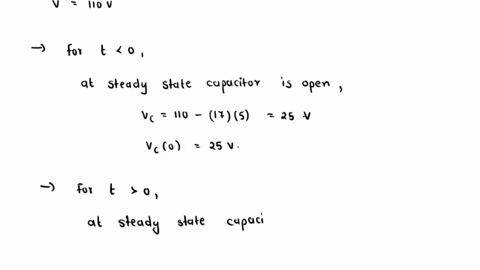 V = 110 V
→ for t < 0,
at steady state capacitor is open,
Vc = 110 - (17)(5) = 25 V
Vc(0) = 25 V.
→ for t > 0,
at steady state capaci